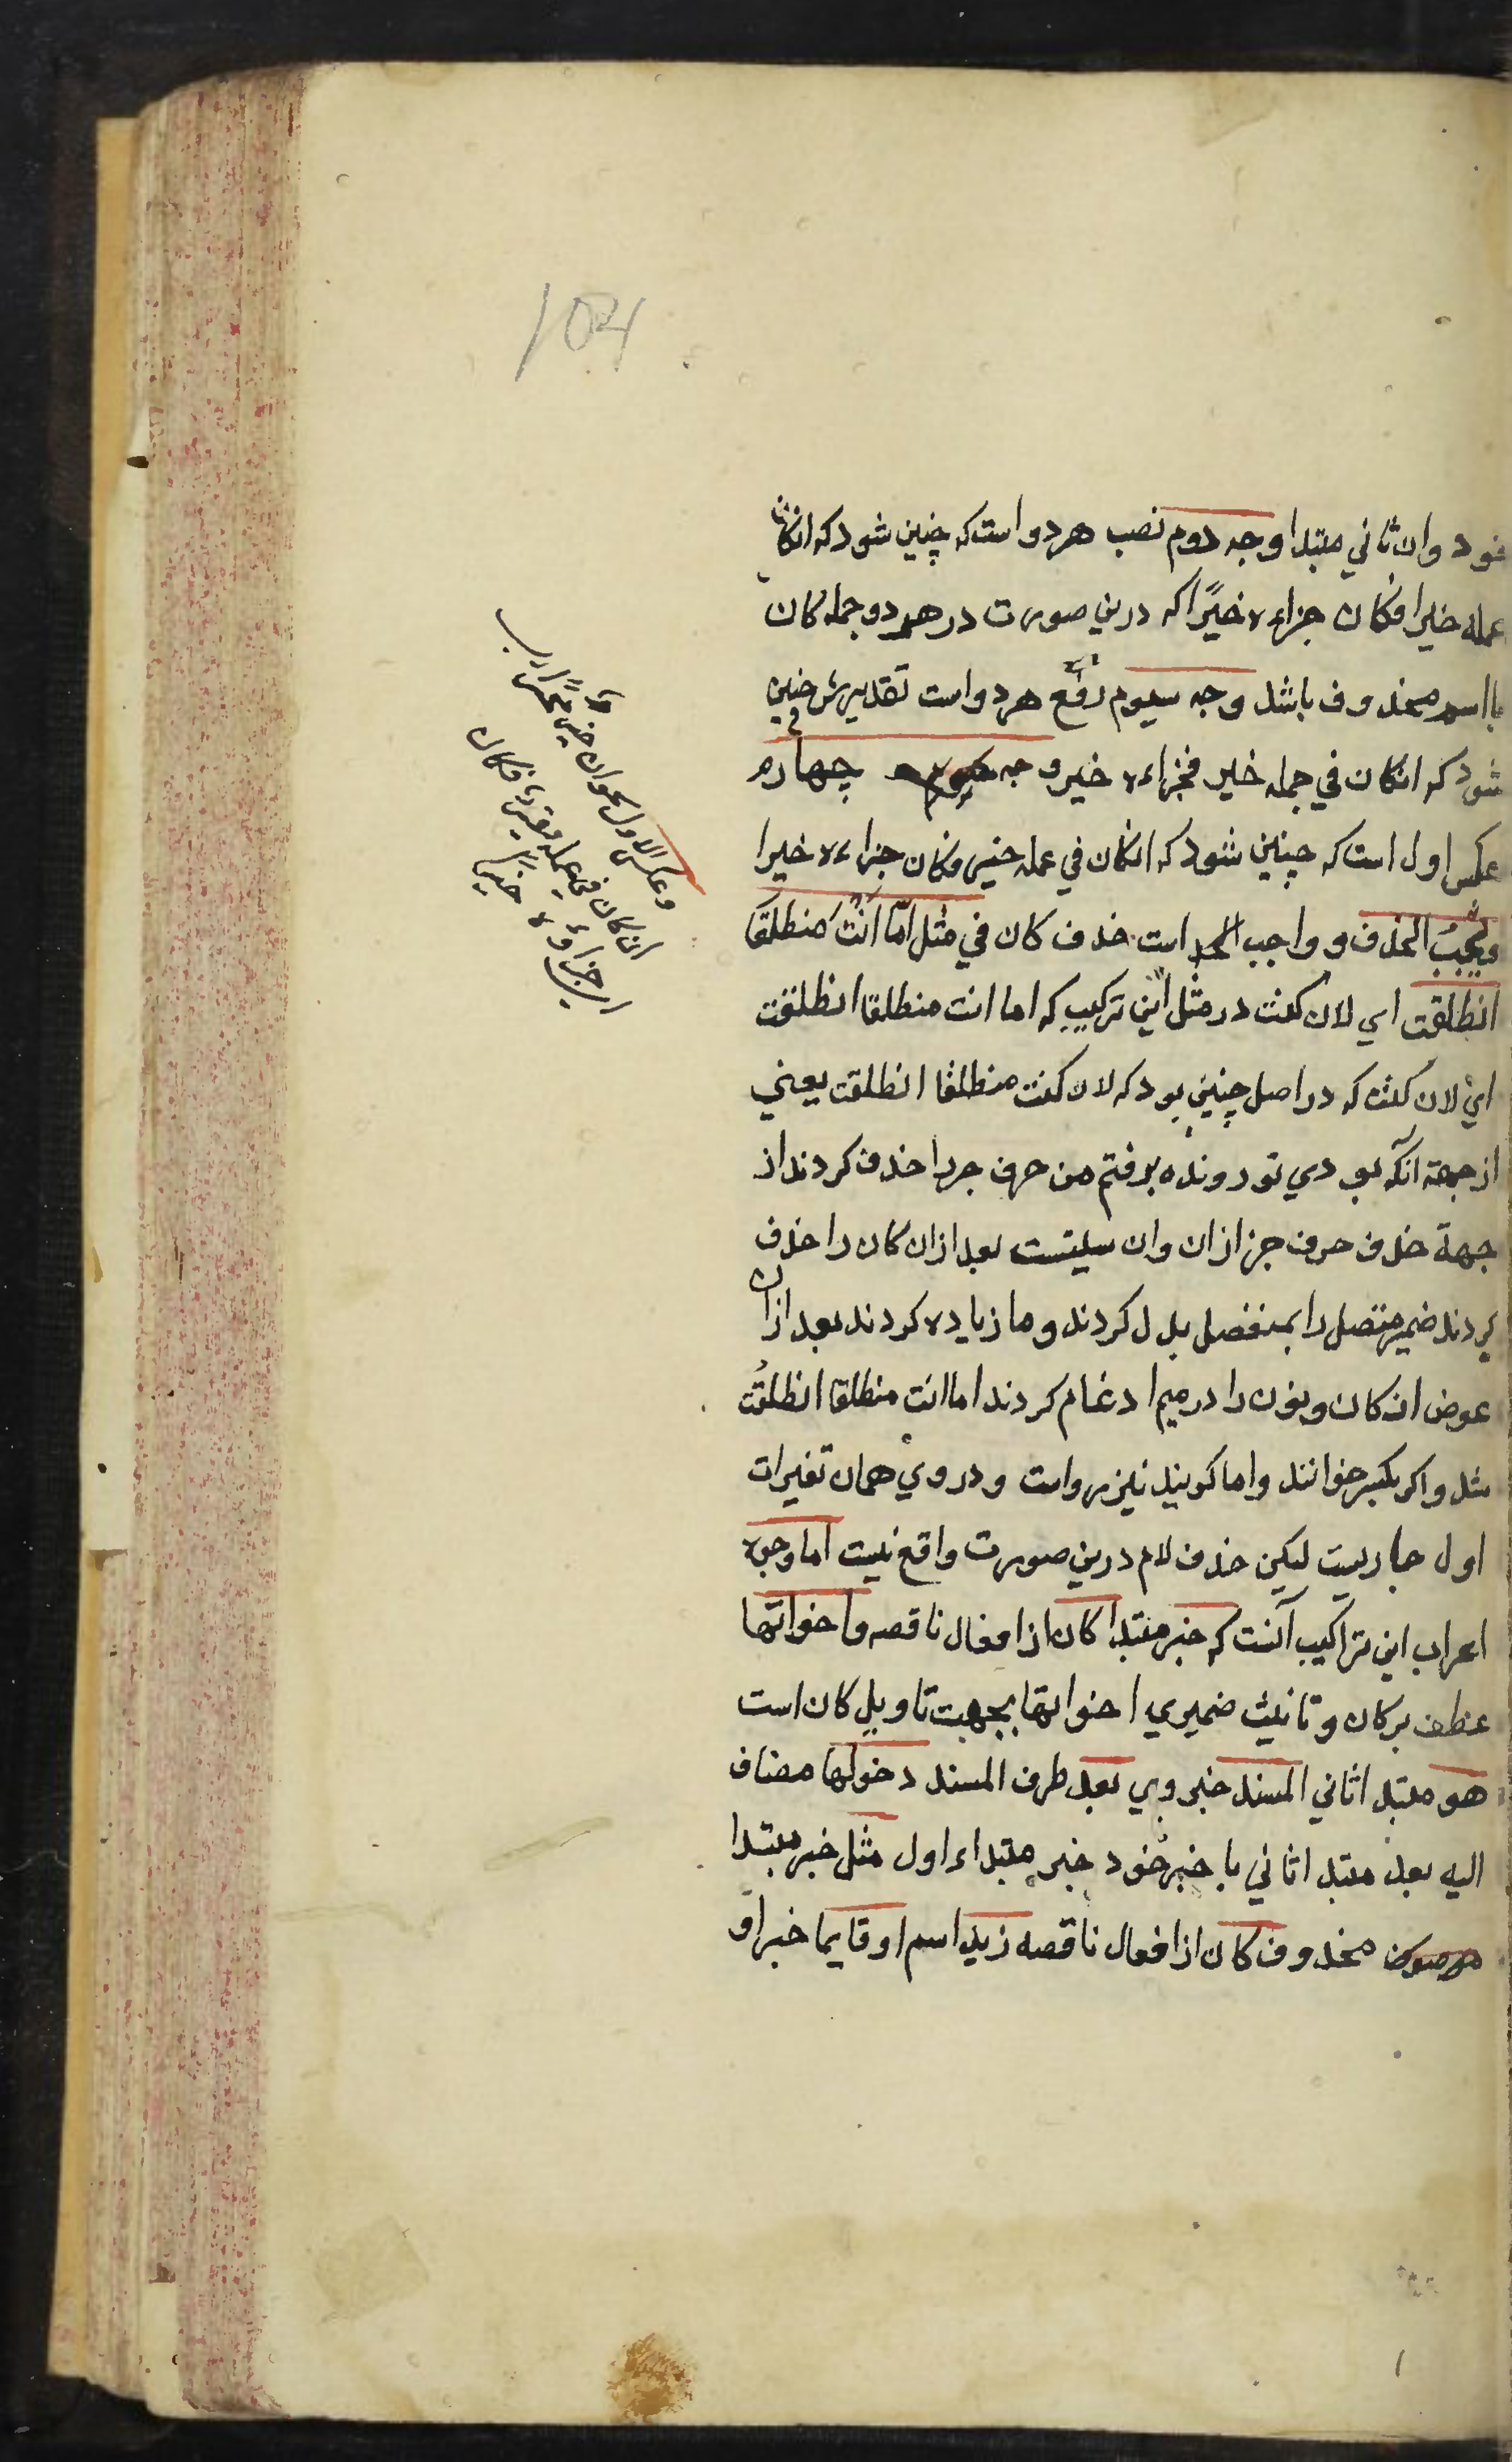 104
خود وان ثاني مبتدا وجه دوم نصب هردو است كه چنين شود كه انكان
عمله خيرا فكان جزاءه خيرًا كه درين صورت در هردو جمله كان
بااسم محذوف باشد وجه سيوم رفع هردو است تقديرش چنين
شود كه انكان في عمله خير فجزاءه خير وجه چهارم
عكس اول است كه چنين شود كه انكان في عمله خير فكان جزاءه خيرا
ويجب الحذف و واجب است حذف كان في مثل امّا انتَ منطلقًا
انطلقت اي لان كنت در مثل اين تركيب كه اما انت منطلقا انطلقت
اي لان كنت كه در اصل چنين بود كه لان كنت منطلقا انطلقت يعني
از جهة آنكه بودي تو رونده برفتم من حرف جر را حذف كردند از
جهة حذف حرف جر از ان وان بعد ازان كان را حذف
كردند ضمير متصل را بمنفصل بدل كردند وما زياده كردند بعد ازان
عوض ان كان ونون را در ميم ادغام كردند اما انت منطلقا انطلقت
شد واكر بكسر خوانند واما كويند نيز رواست ودروي همان تغيرات
اول جاريست ليكن حذف لام درين صورت واقع نيست اما وجوه
اعراب اين تراكيب آنست كه خبر مبتدا كان از افعال ناقصه واخواتها
عطف بر كان وتانيث ضميري اخواتها بجهت تاويل كان است
هو مبتدا ثاني المسند خبر وي بعد ظرف المسند دخولها مضاف
اليه بعد مبتدا ثاني با خبر خود خبر مبتداء اول مثل خبر مبتدا
محذوف كان از افعال ناقصه زيد اسم او قايما خبر او
وعكس الاول
ان كان في عمله فكان
جزاؤه خيرا